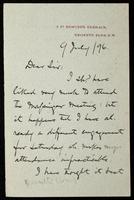 REGENT'S PARK, N.W.
9 July /96
Dear Sir,
I shd have
liked very much to attend
the Mosainger Meeting but
it happens that I have al-
ready a different engagement
for Saturday wh. makes my
attendance impracticable
I have bought it best